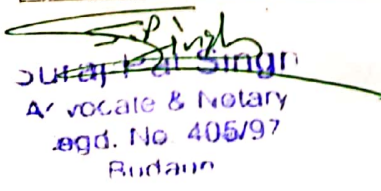 S.P. Singh
Suraj Pal Singh
Advocate & Notary
Regd. No. 405/97
Budaun